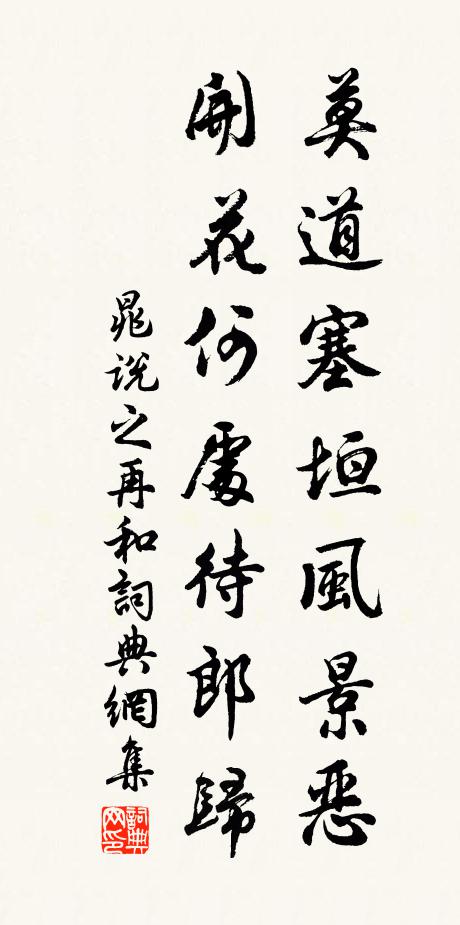 莫道塞垣風景惡
開花何處待郎歸
晁説之再和詞典網集
詞典網印